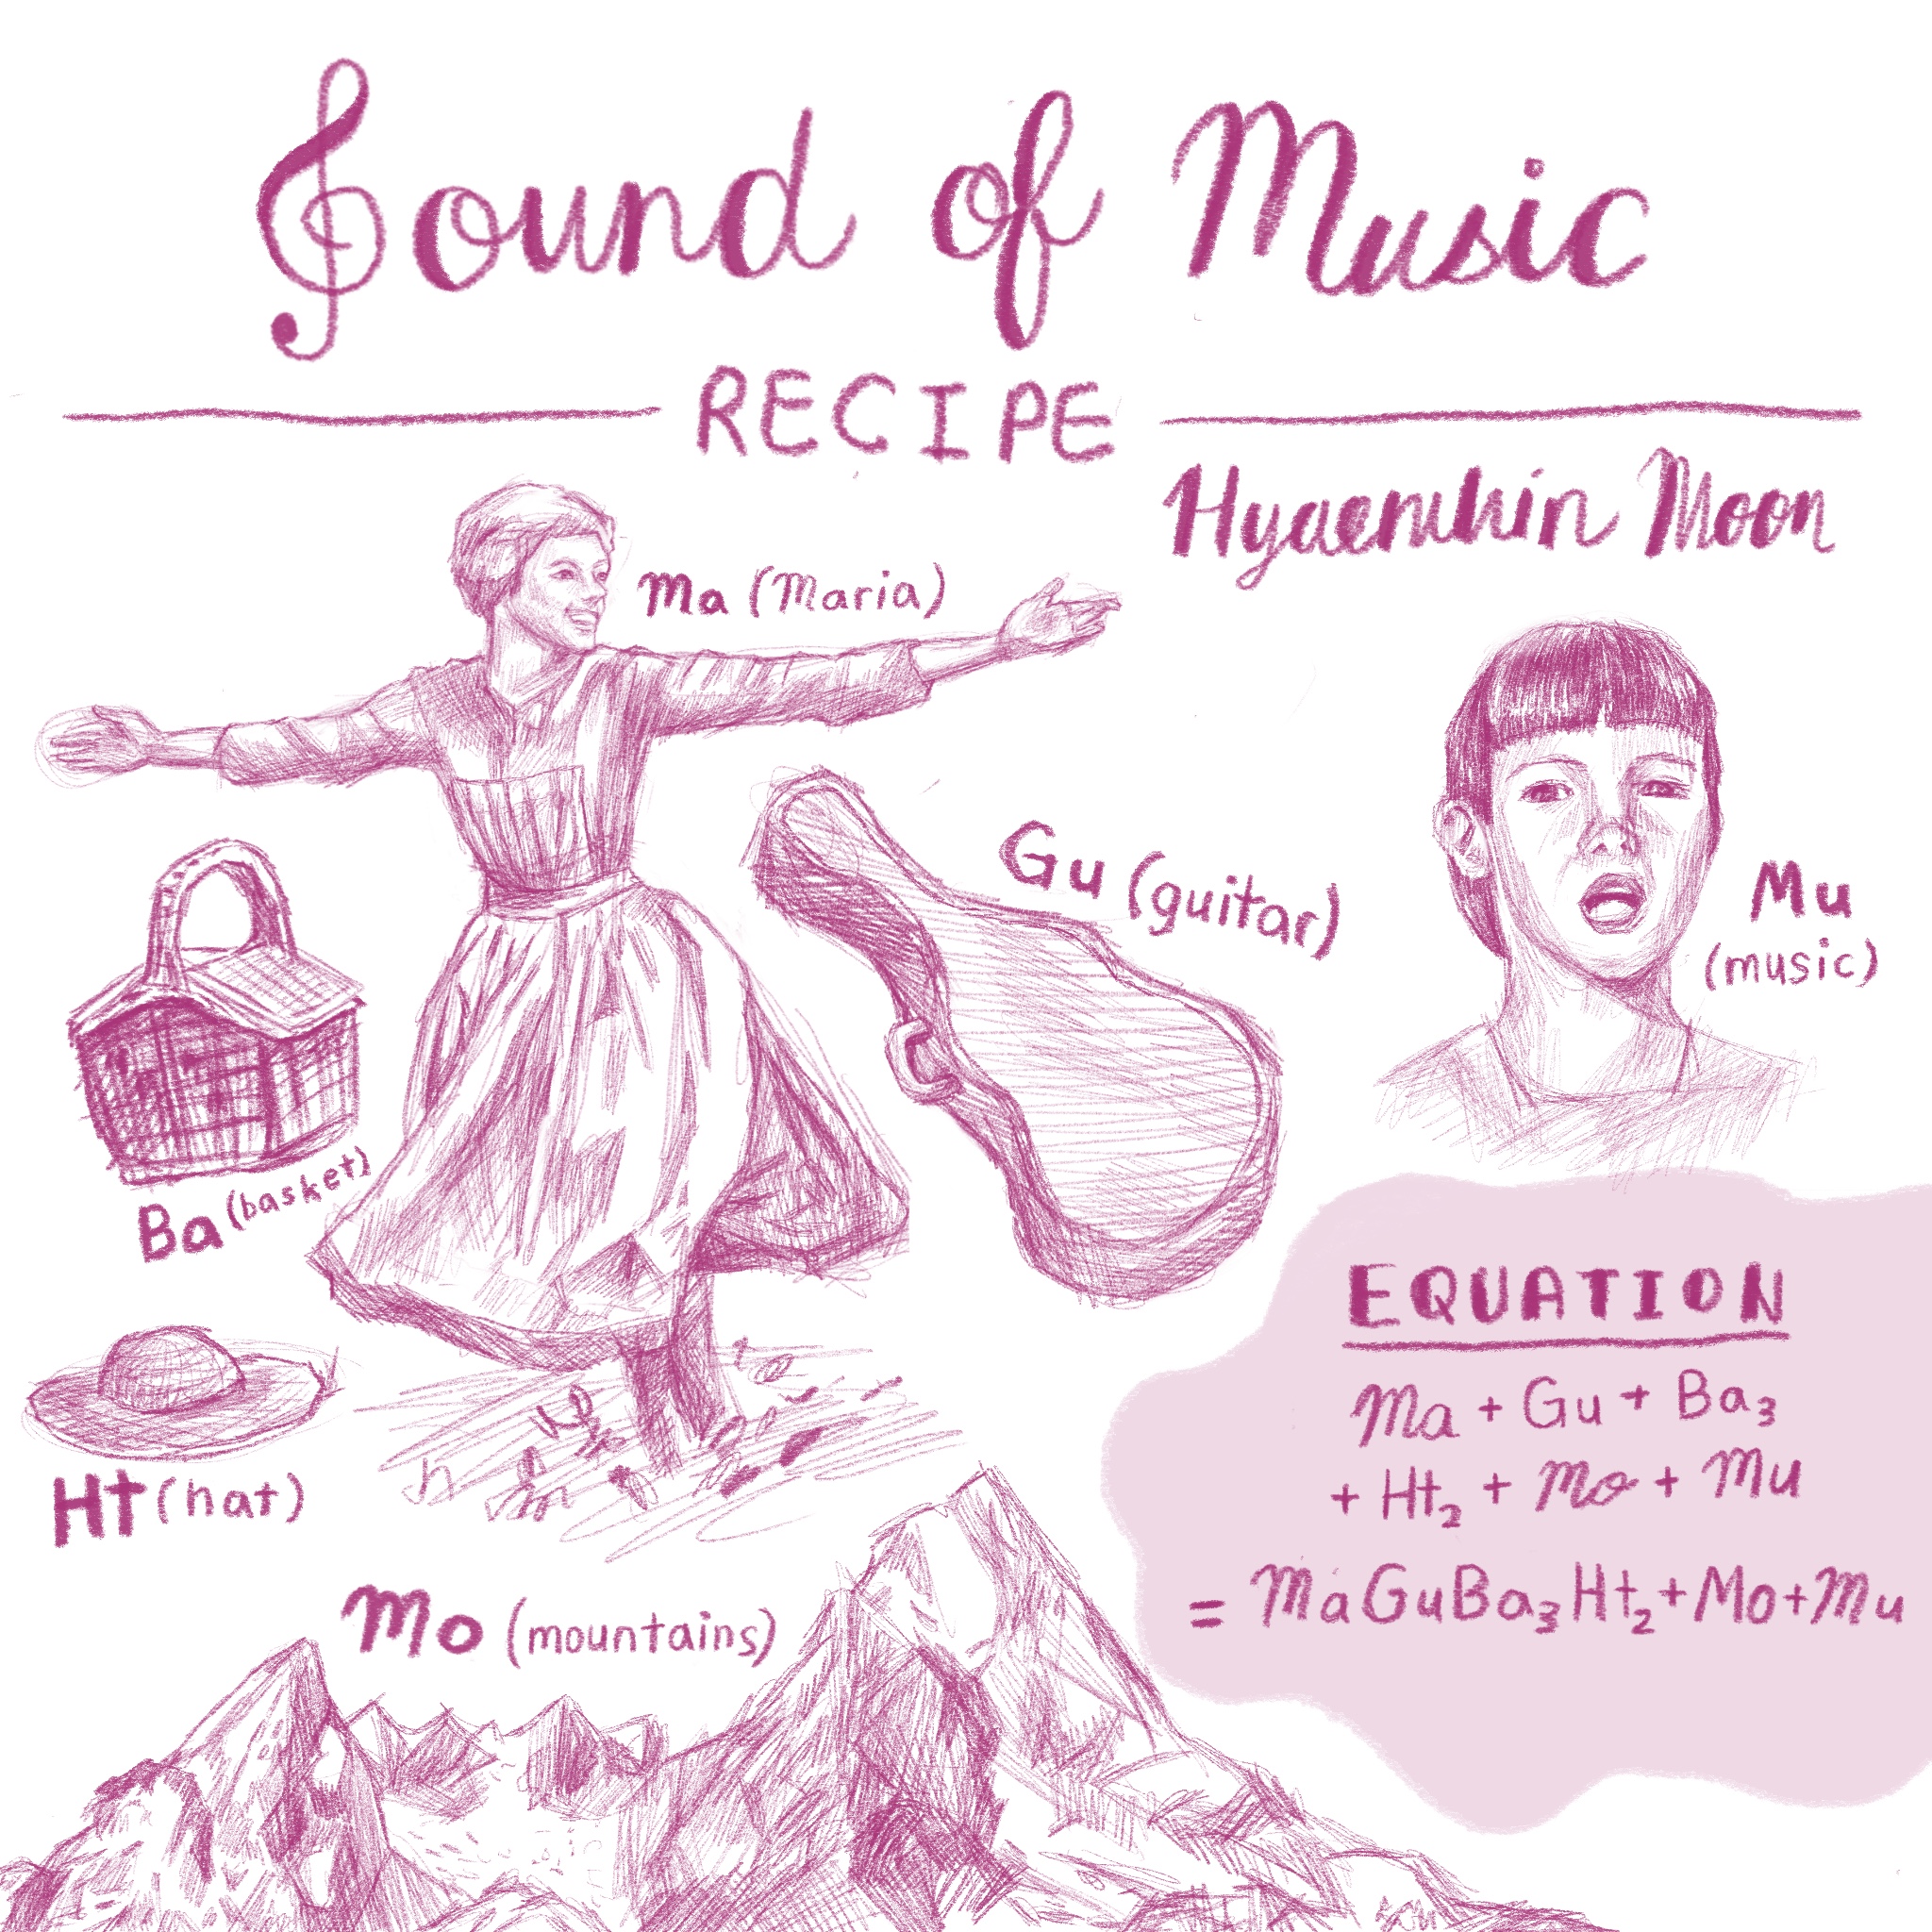 Sound of Music
RECIPE
Moon
Ma (Maria)
Gu (guitar)
Mu
(music)
Ba (basket)
Ht (hat)
Mo (mountains)
EQUATION
Ma + Gu + Ba₃
+ Ht₂ + Mo + Mu
= MaGuBa₃Ht₂+Mo+Mu